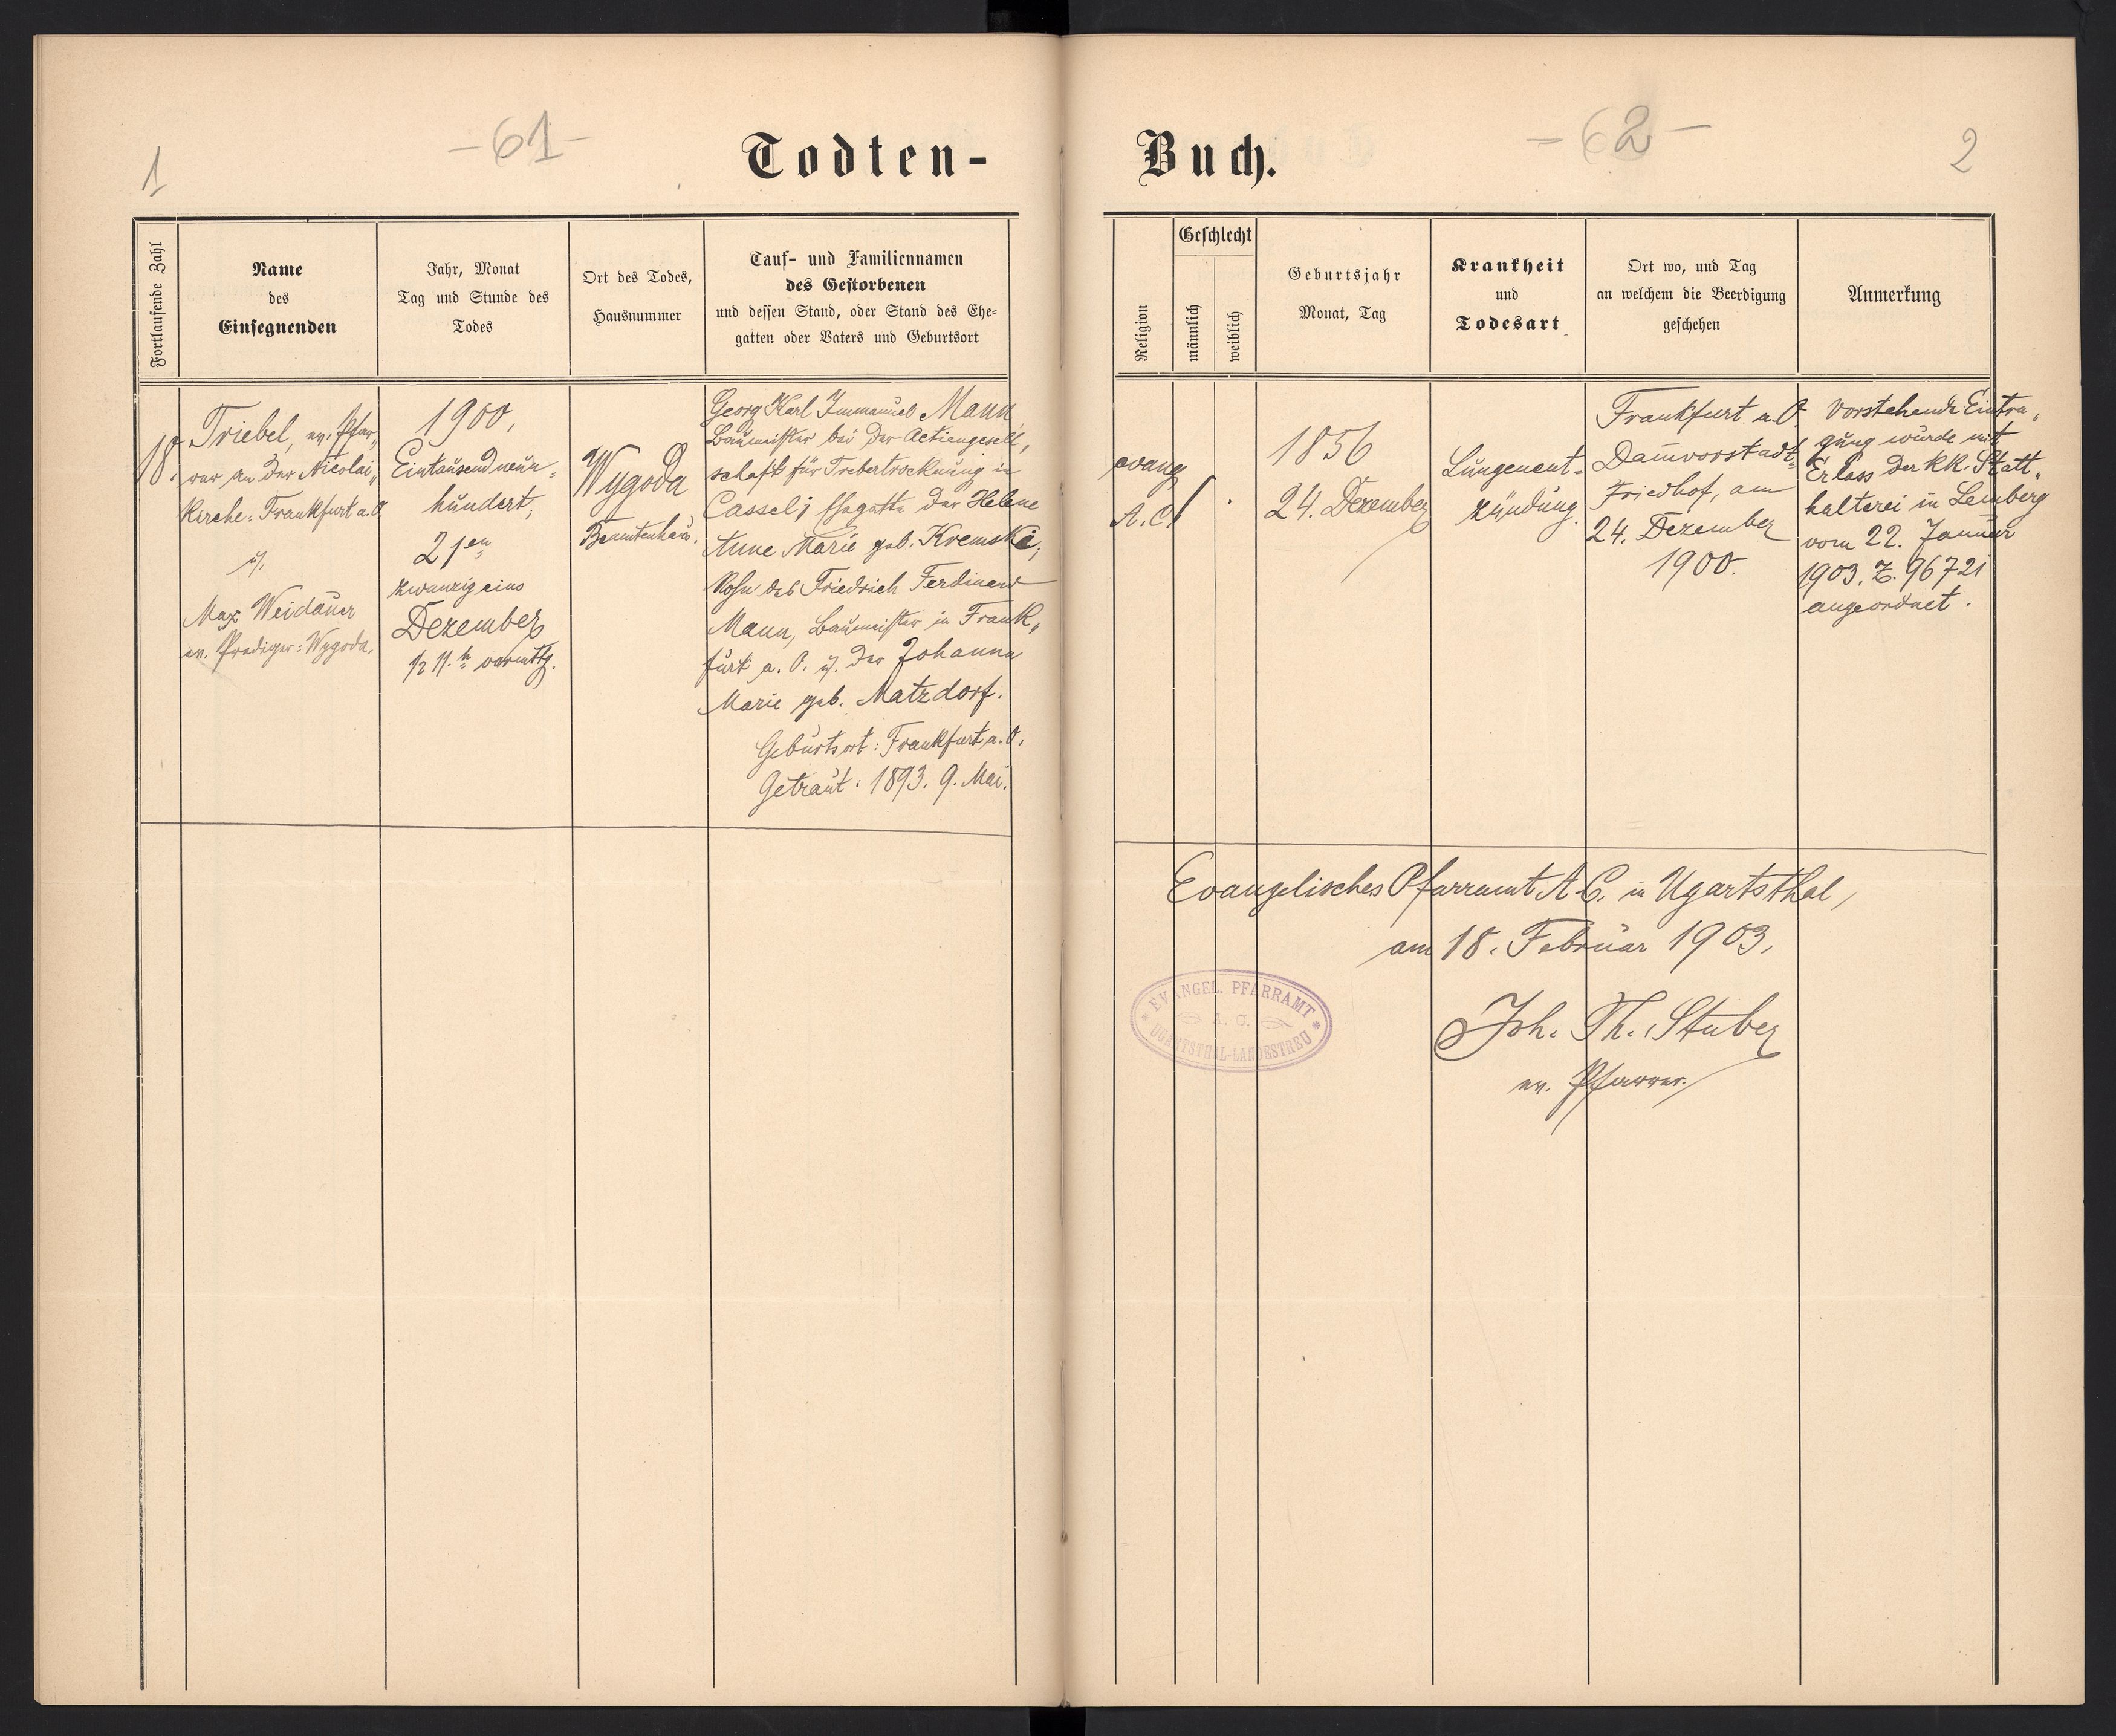 1
-61-
Todten-
Fortlaufende Zahl
Name
des
Einsegnenden
Jahr, Monat
Tag und Stunde des
Todes
Ort des Todes,
Hausnummer
Tauf- und Familiennamen
des Gestorbenen
und dessen Stand, oder Stand des Ehe-
gatten oder Vaters und Geburtsort
18.
Triebel, ev. Pfar„
rer an der Nicolai„
Kirche: Frankfurt a. O
u.
Max Weidauer
ev. Prediger: Wygoda.
1900,
Eintausendneun-
hundert,
21en
zwanzig eins
Dezember
½ 11. h vormttg.
Wygoda
Beamtenhaus.
Georg Karl Immanuel Mann,
Baumeister bei der Actiengesell,
schaft für Trebertrocknung in
Cassel; Ehegatte der Helene
Anne Marie geb. Kremski,
Sohn des Friedrich Ferdinand
Mann, Baumeister in Frank„
furt a. O. u. der Johanna
Marie geb. Matzdorf.
Geburtsort: Frankfurt a. O.
Getraut: 1893. 9. Mai.
Buch.
-62-
2
Religion
Geschlecht
männlich
weiblich
Geburtsjahr
Monat, Tag
Krankheit
und
Todesart
Ort wo, und Tag
an welchem die Beerdigung
geschehen
Anmerkung
evang
A. C.
/
1856
24. Dezember
Lungenent-
zündung.
Frankfurt a. O.
Dam̄vorstadt-
Friedhof, am
24. Dezember
1900.
Vorstehende Eintra„
gung wurde mit
Erlass der kk. Statt„
halterei in Lemberg
vom 22. Januar
1903. Z. 96721
angeordnet.
Evangelisches Pfarramt A. C. in Ugartsthal,
am 18. Februar 1903.
EVANGEL. PFARRAMT
A. C.
UGARTSTHAL-LANDESTREU
Joh. Th. Stuber
ev. Pfarrer.